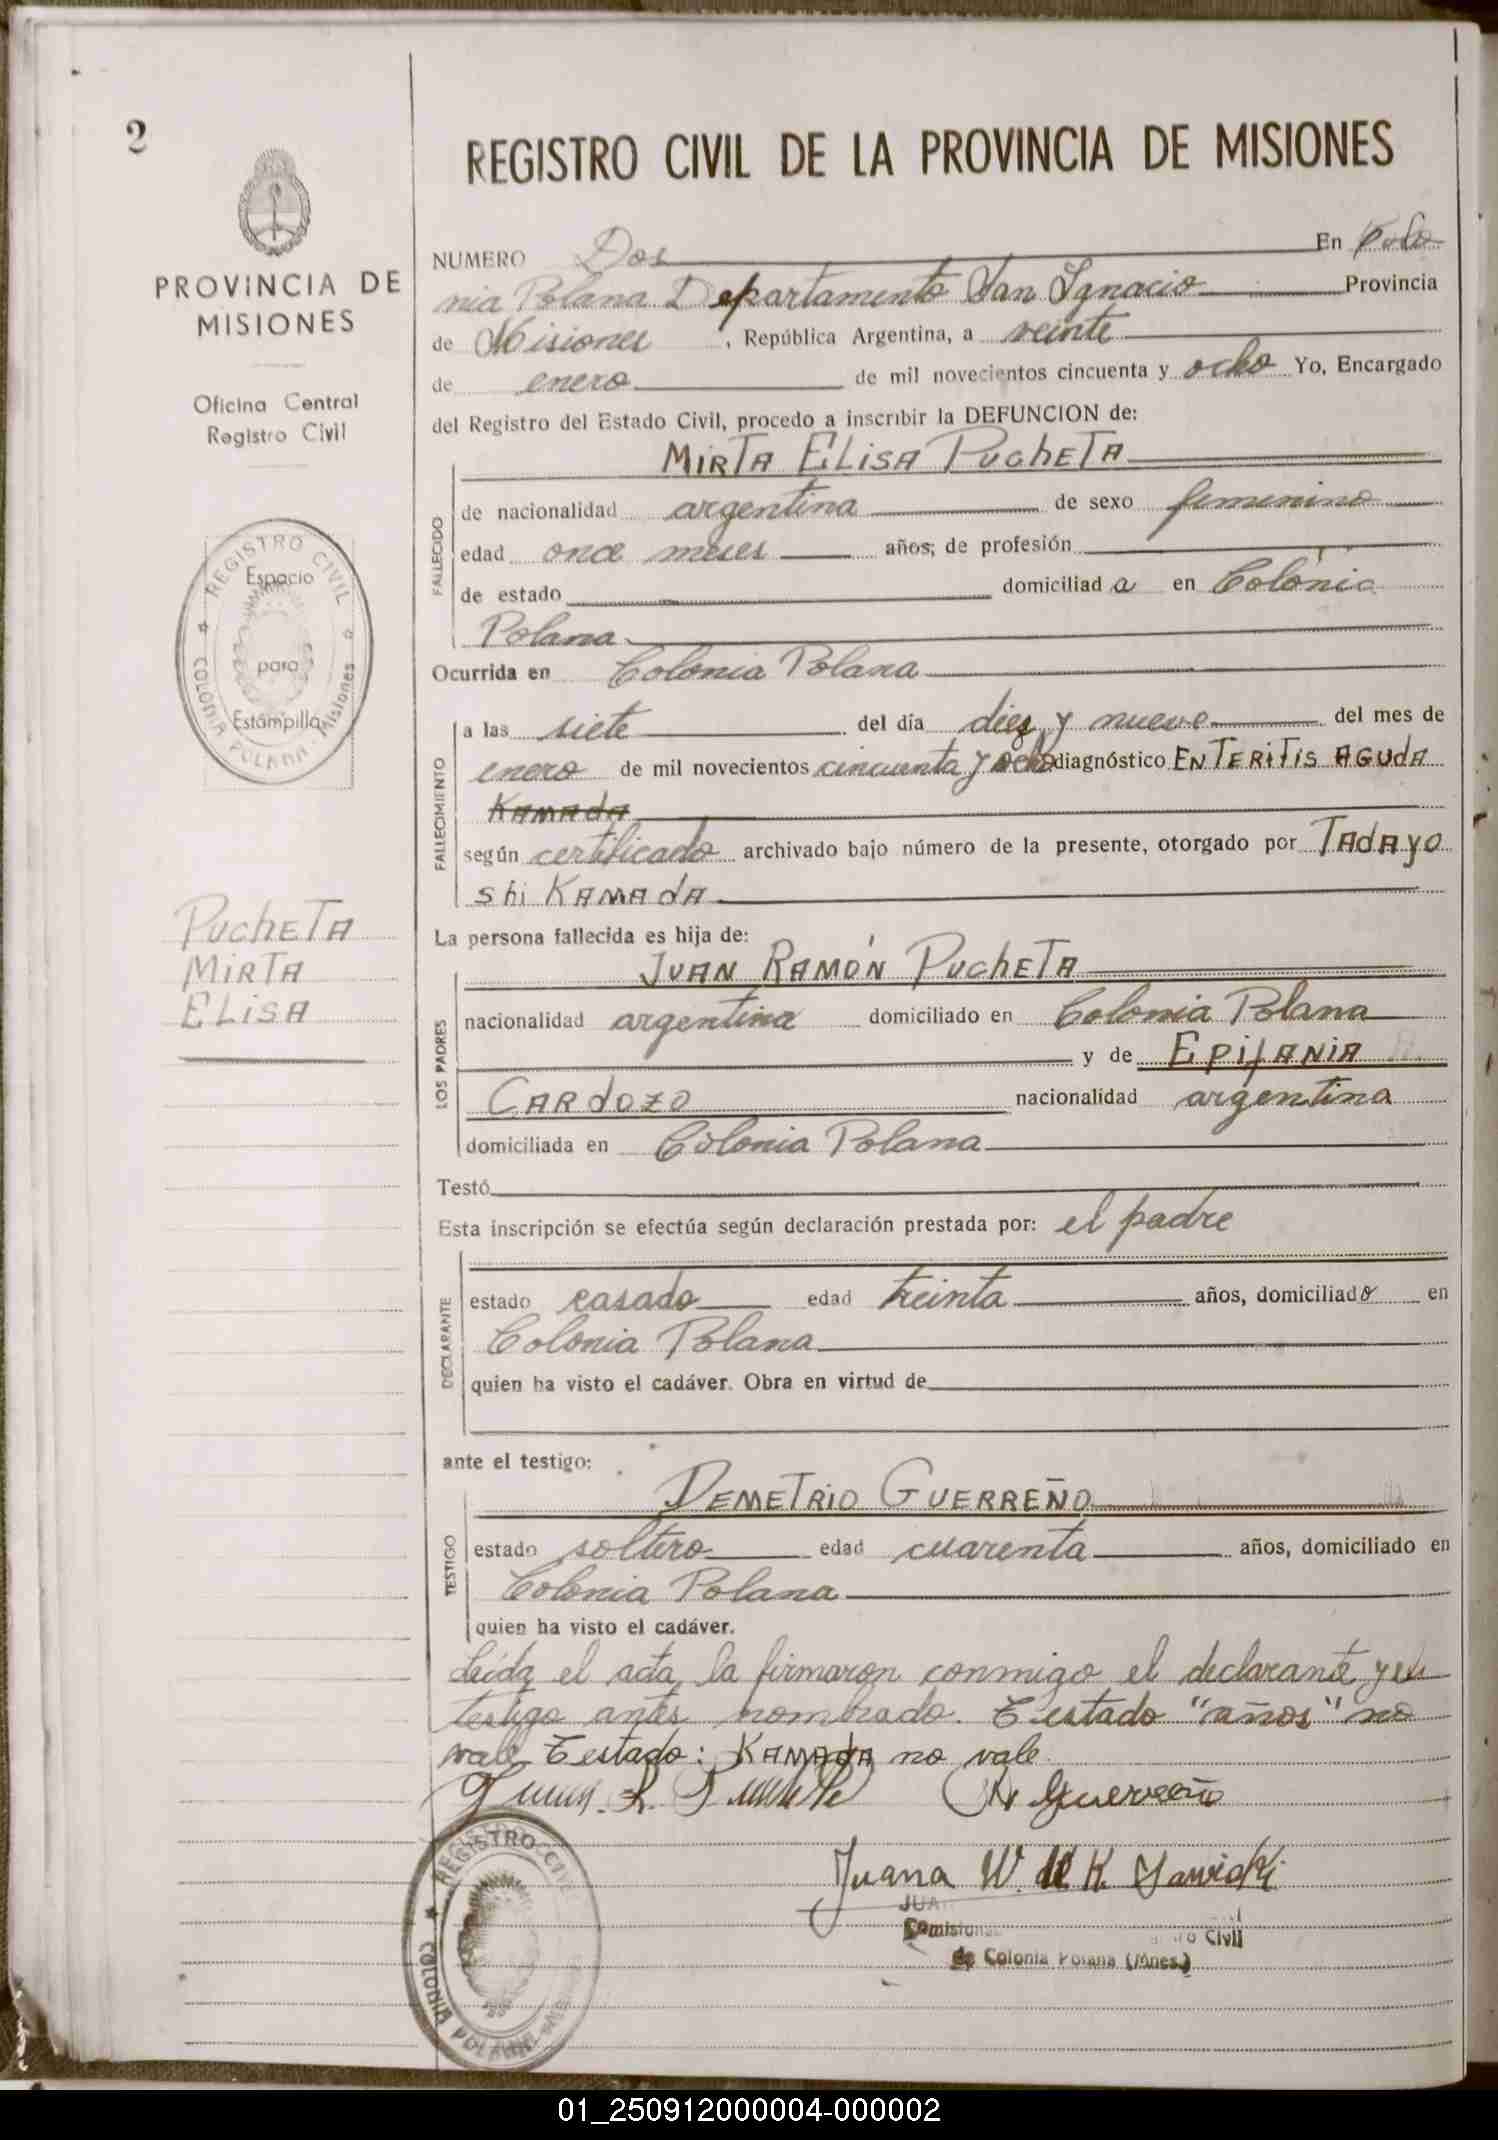 2
REGISTRO CIVIL DE LA PROVINCIA DE MISIONES
PROVINCIA DE
MISIONES
Oficina Central
Registro Civil
REGISTRO CIVIL
Espacio
para
Estampilla
COLONIA POLANA - Misiones
PUCHETA
MIRTA
ELISA
NUMERO Dos En Colo
nia Polana Departamento San Ignacio Provincia
de Misiones, República Argentina, a veinte
de enero de mil novecientos cincuenta y ocho Yo, Encargado
del Registro del Estado Civil, procedo a inscribir la DEFUNCION de:
MIRTA ELISA PUCHETA
FALLECIDO
de nacionalidad argentina de sexo femenino
edad once meses años; de profesión
de estado domiciliad a en Colonia
Polana
Ocurrida en Colonia Polana
FALLECIMIENTO
a las siete del día diez y nueve del mes de
enero de mil novecientos cincuenta y ocho diagnóstico ENTERITIS AGUDA
KAMADA
según certificado archivado bajo número de la presente, otorgado por TADAYO
SHI KAMADA
La persona fallecida es hija de:
JUAN RAMÓN PUCHETA
LOS PADRES
nacionalidad argentina domiciliado en Colonia Polana
y de EPIFANIA
CARDOZO nacionalidad argentina
domiciliada en Colonia Polana
Testó
Esta inscripción se efectúa según declaración prestada por: el padre
DECLARANTE
estado casado edad treinta años, domiciliado en
Colonia Polana
quien ha visto el cadáver. Obra en virtud de
ante el testigo:
DEMETRIO GUERREÑO
TESTIGO
estado soltero edad cuarenta años, domiciliado en
Colonia Polana
quien ha visto el cadáver.
Leída el acta, la firmaron conmigo el declarante y el
testigo antes nombrado. Testado "años" no
vale Testado: KAMADA no vale
Guerreño
Juana W. de K. Sawicki
REGISTRO CIVIL
COLONIA POLANA
JUA
Civil
de Colonia Polana (Mnes.)
01_250912000004-000002